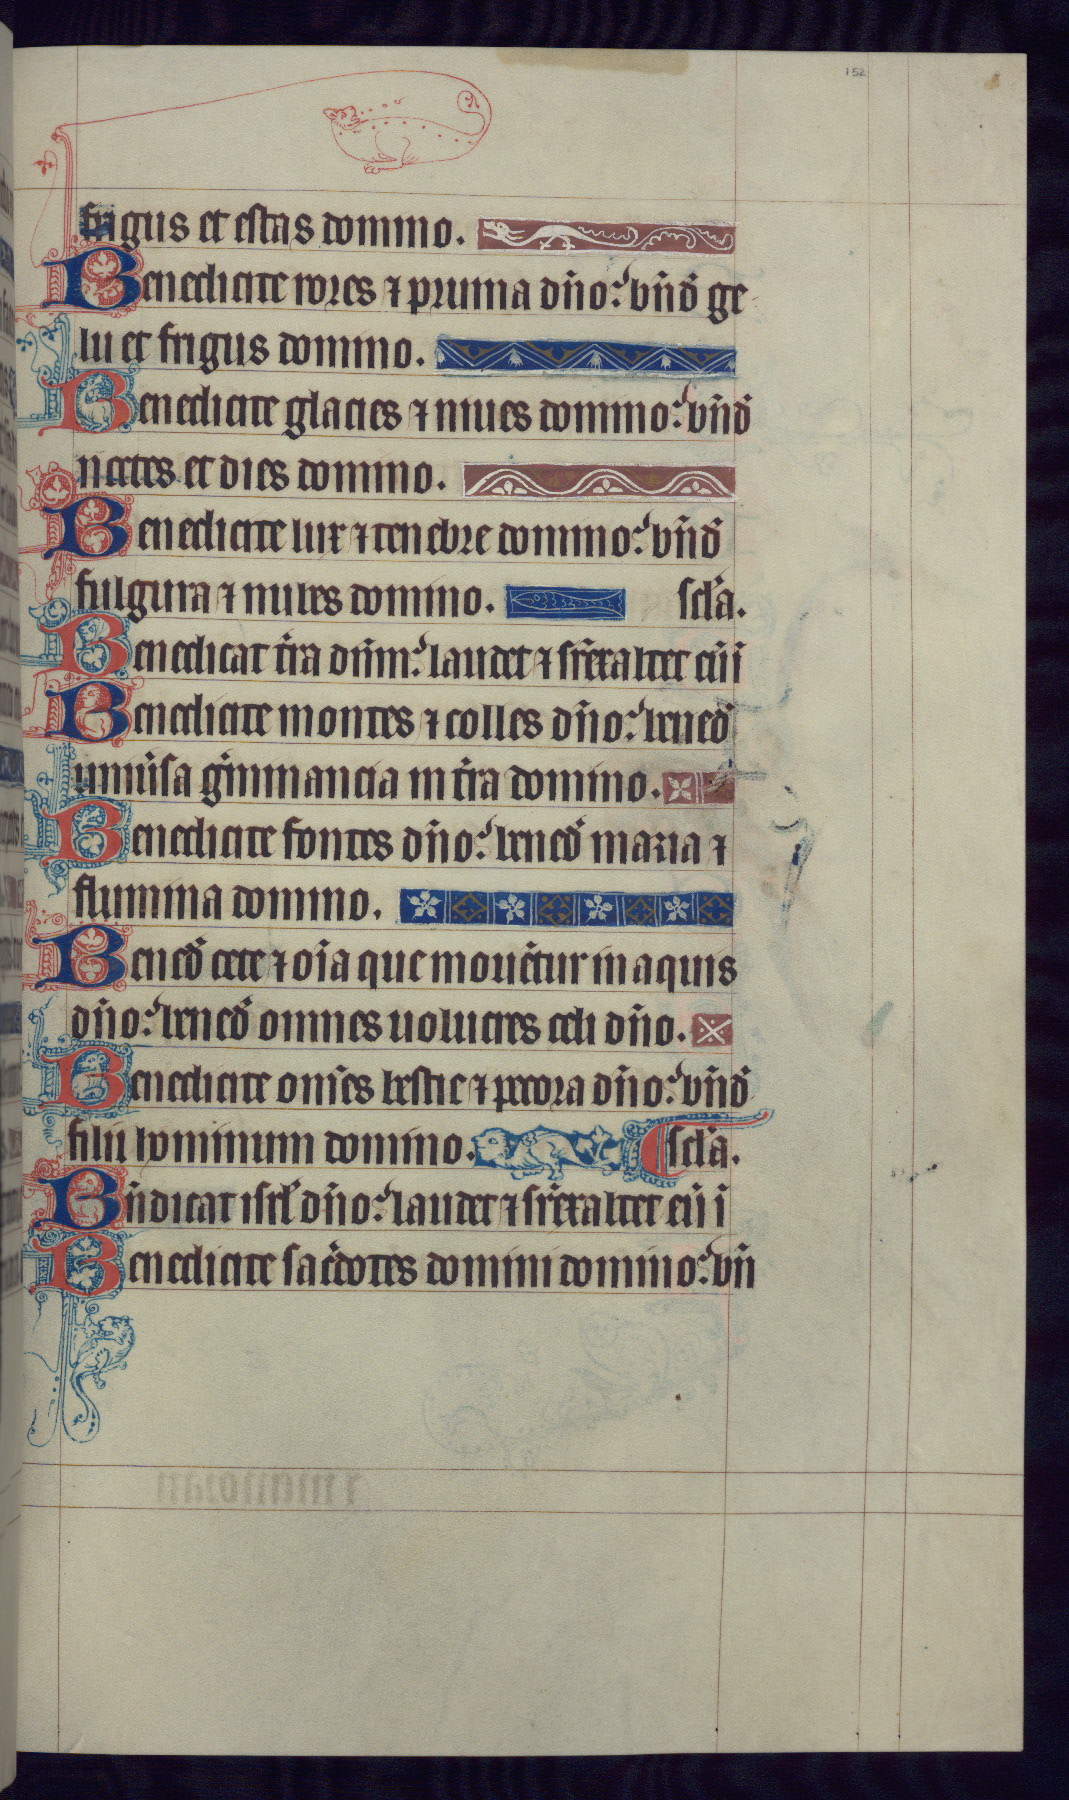 152
frigus et estas domino.
Benedicite rores ⁊ pruina dño: bñd ge
lu et frigus domino.
Benedicite glacies ⁊ niues domino: bñd
noctes et dies domino.
Benedicite lux ⁊ tenebre domino: bñd
fulgura ⁊ nubes domino. scl'a.
Benedicat t'ra dñm: laudet ⁊ sr'exaltet eū i
Benedicite montes ⁊ colles dño: bened'
uniu'sa g'minancia in t'ra domino.
Benedicite fontes dño: bened' maria ⁊
flumina domino.
Bened' cete ⁊ oīa que mouētur in aquis
dño: bened' omnes uolucres celi dño.
Benedicite om̄es bestie ⁊ pecora dño: bñd
filii hominum domino. scl'a.
Bñdicat isrl' dño: laudet ⁊ sr'exaltet eū i
Benedicite sac'dotes domini domino: bñ